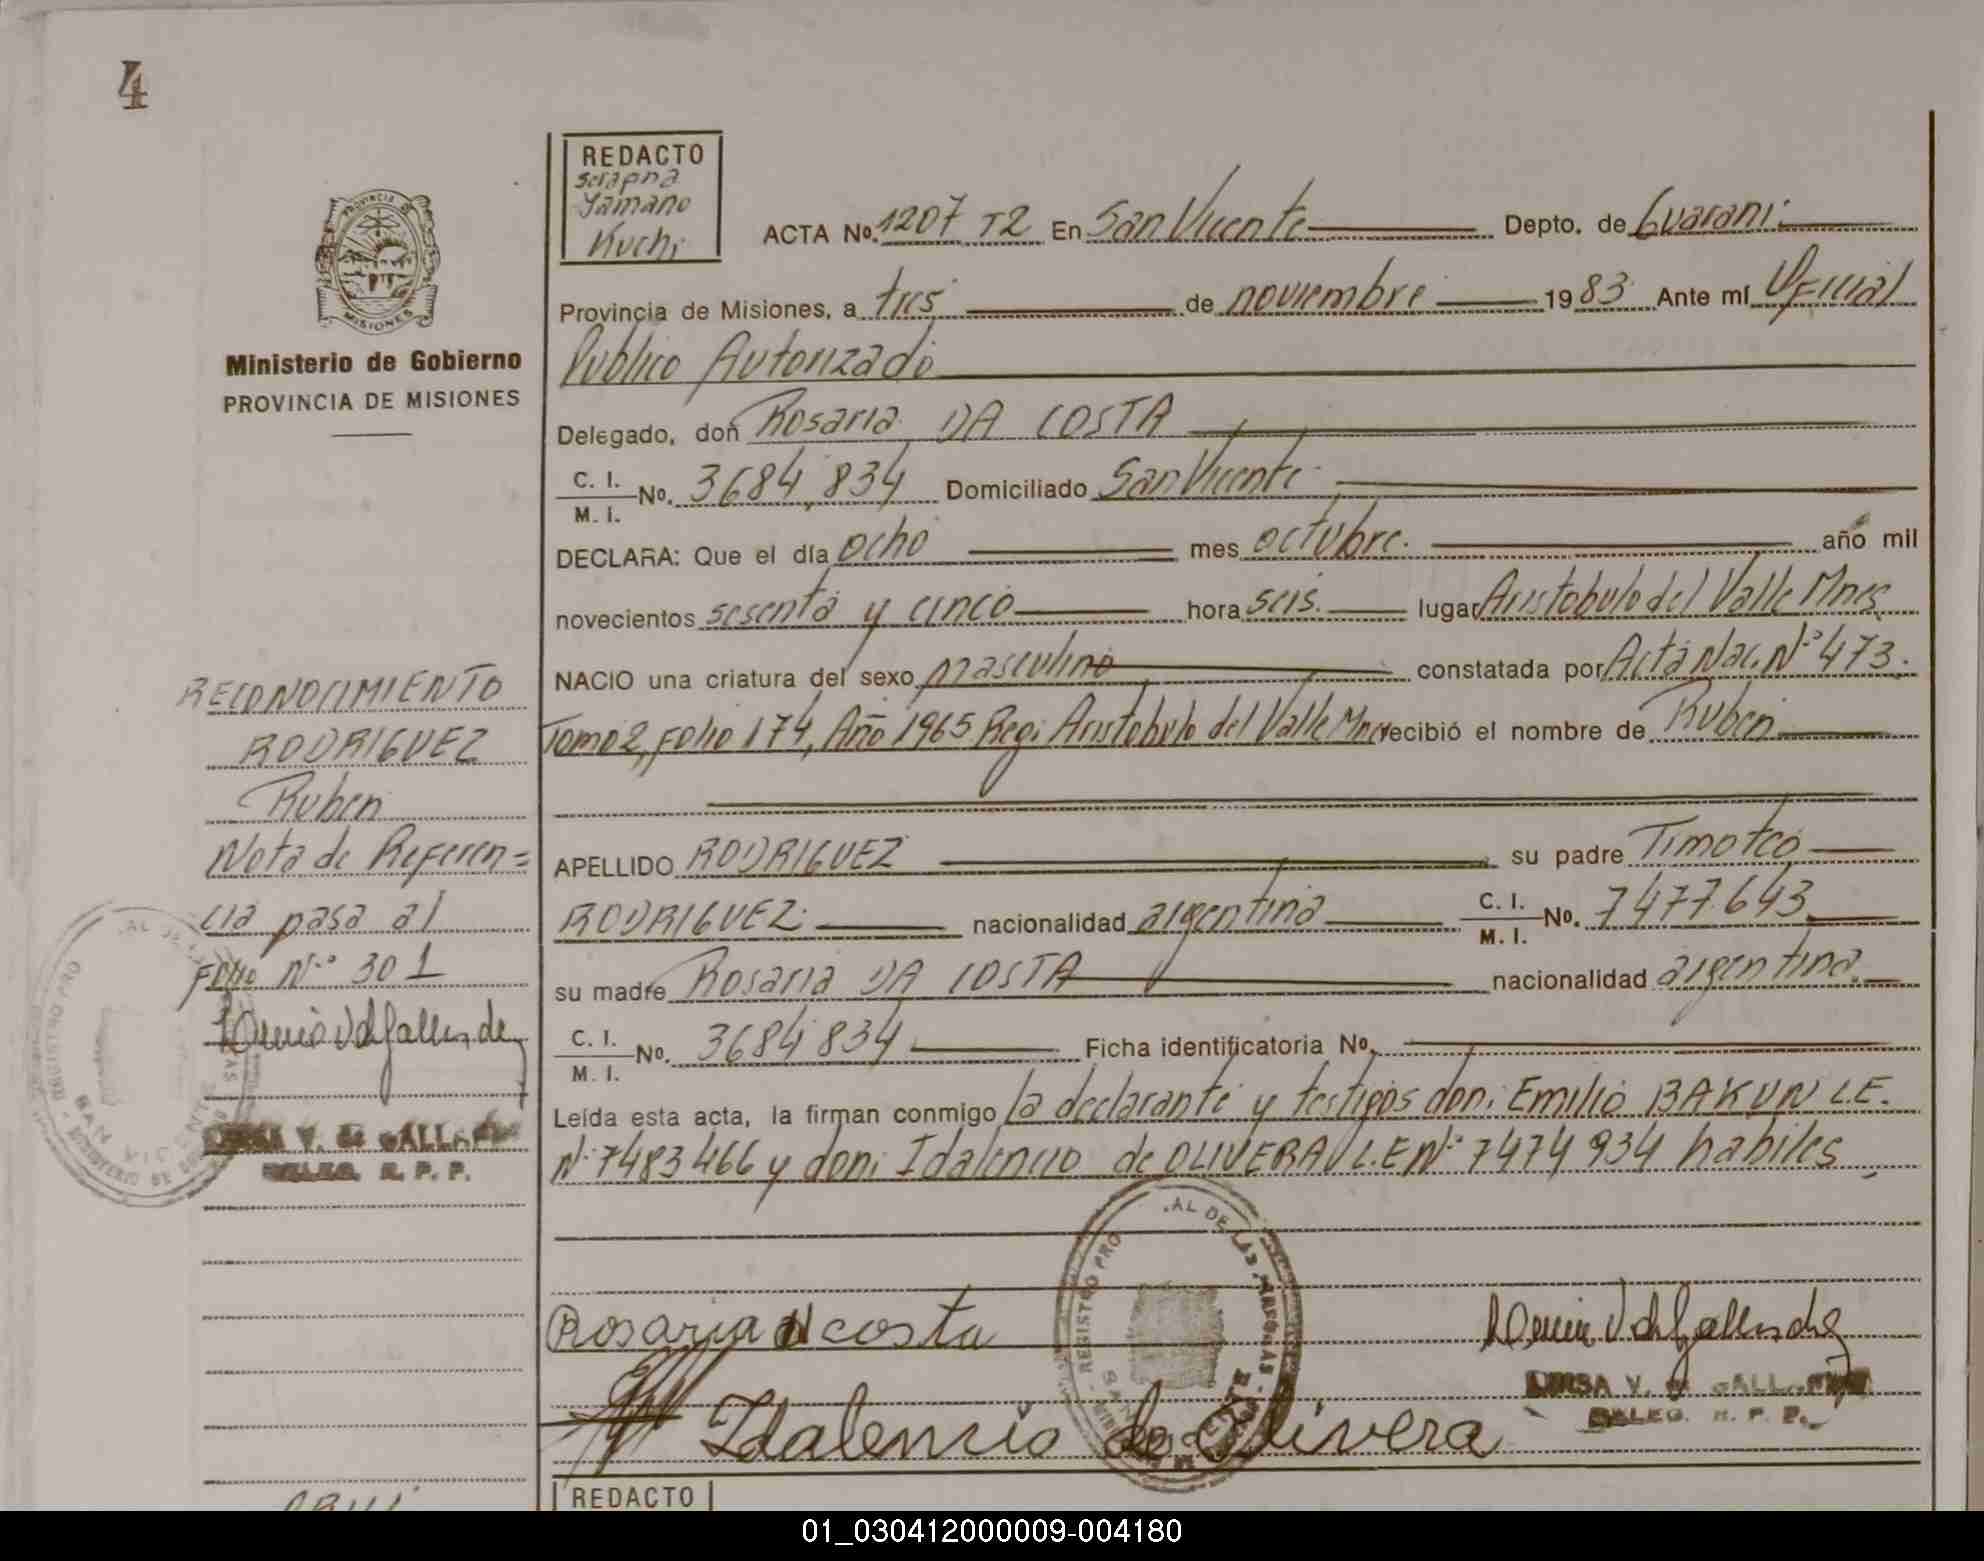 4
REDACTO
Serapna
Yamano
Kuchi
ACTA No. 1207 T2 En San Vicente Depto. de Guarani
PROVINCIA DE
MISIONES
Ministerio de Gobierno
PROVINCIA DE MISIONES
Provincia de Misiones, a tres de noviembre 1983 Ante mí Oficial
Publico Autorizado
Delegado, don Rosaria DA COSTA
C. I.
M. I. No. 3684,834 Domiciliado San Vicente
DECLARA: Que el día ocho mes octubre. año mil
novecientos sesenta y cinco hora seis. lugar Aristobulo del Valle Mnes
NACIO una criatura del sexo masculino constatada por Acta Nac. Nº 473.
Tomo 2, Folio 174, Año 1965 Reg. Aristobulo del Valle Mnes recibió el nombre de Ruben
APELLIDO RODRIGUEZ su padre Timoteo
RODRIGUEZ nacionalidad argentina C. I.
M. I. No. 7477.643
su madre Rosaria DA COSTA nacionalidad argentina.
C. I.
M. I. No. 3684834 Ficha identificatoria No.
Leída esta acta, la firman conmigo la declarante y testigos don: Emilio BAKUN L.E.
Nº 7483466 y don: Idalencio de OLIVERA L.E Nº 7474934 habiles
RECONOCIMIENTO
RODRIGUEZ
Ruben
Nota de Referen=
cia pasa al
Folio Nº 301
V. de GALL
DELEG. R. P. P.
REGISTRO PRO AL DE LAS PERSONAS
SAN VICENTE
Rosaria d costa
Idalencio de Olivera
V. de GALL
DELEG. R. P. P.
REDACTO
01_030412000009-004180